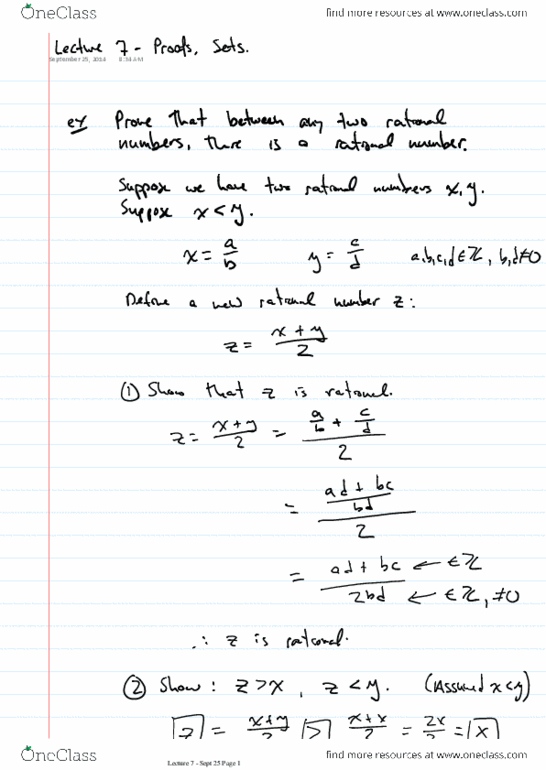 OneClass find more resources at www.oneclass.com
Lecture 7 - Proofs, Sets.
September 25, 2014 8:53 AM
ex Prove that between any two rational
numbers, there is a rational number.
Suppose we have two rational numbers x, y.
Suppose x < y.
x = a/b y = c/d a,b,c,d ∈ ℤ, b,d ≠ 0
Define a new rational number z:
z = x + y / 2
① Show that z is rational.
z = x + y / 2 = a/b + c/d / 2
= ad + bc / bd / 2
= ad + bc ← ∈ ℤ
2bd ← ∈ ℤ, ≠ 0
∴ z is rational.
② Show: z > x, z < y. (Assumed x < y)
z = x+y / 2 > x+x / 2 = 2x / 2 = x
Lecture 7 - Sept 25 Page 1
OneClass find more resources at www.oneclass.com